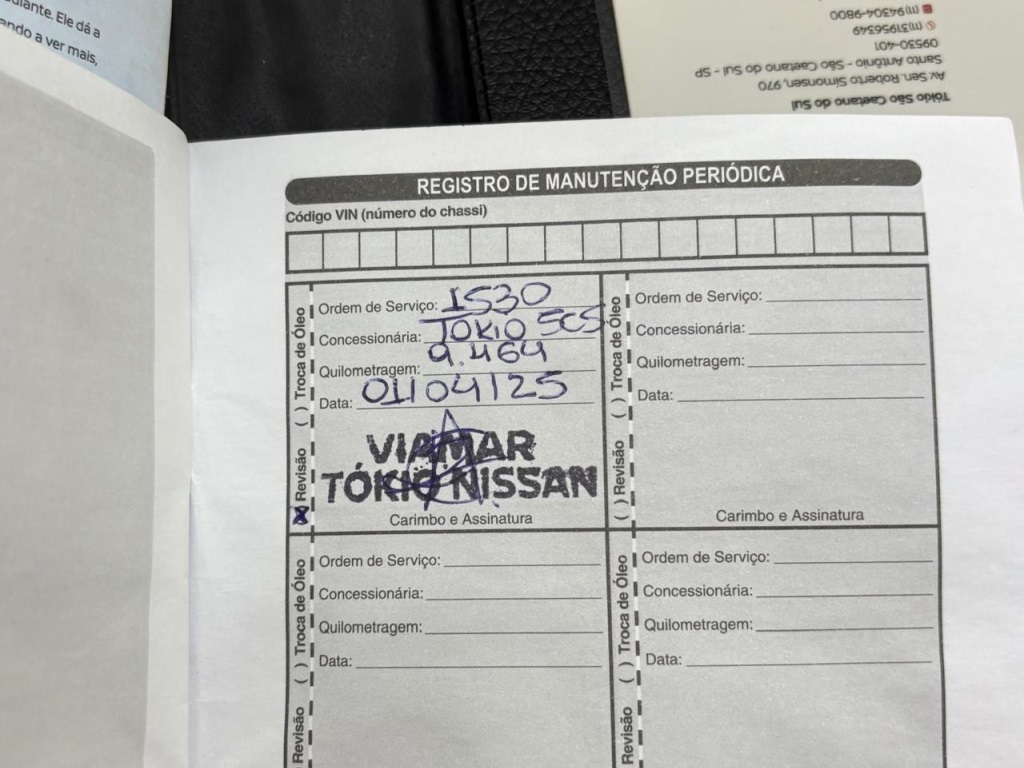 diante. Ele dá a
ando a ver mais,
Tókio São Caetano do Sul
Av. Sen. Roberto Simonsen, 970,
Santo Antônio - São Caetano do Sul - SP
09530-401
(11)31956349
(11)94304-9800
REGISTRO DE MANUTENÇÃO PERIÓDICA
Código VIN (número do chassi)
Ordem de Serviço: 1530
Concessionária: TOKIO SCS
Quilometragem: 9.464
Data: 01/04/25
VIAMAR
TÓKIO NISSAN
Carimbo e Assinatura
X Revisão ( ) Troca de Óleo
Ordem de Serviço:
Concessionária:
Quilometragem:
Data:
Carimbo e Assinatura
( ) Revisão ( ) Troca de Óleo
Ordem de Serviço:
Concessionária:
Quilometragem:
Data:
) Revisão ( ) Troca de Óleo
Ordem de Serviço:
Concessionária:
Quilometragem:
Data:
Revisão ( ) Troca de Óleo